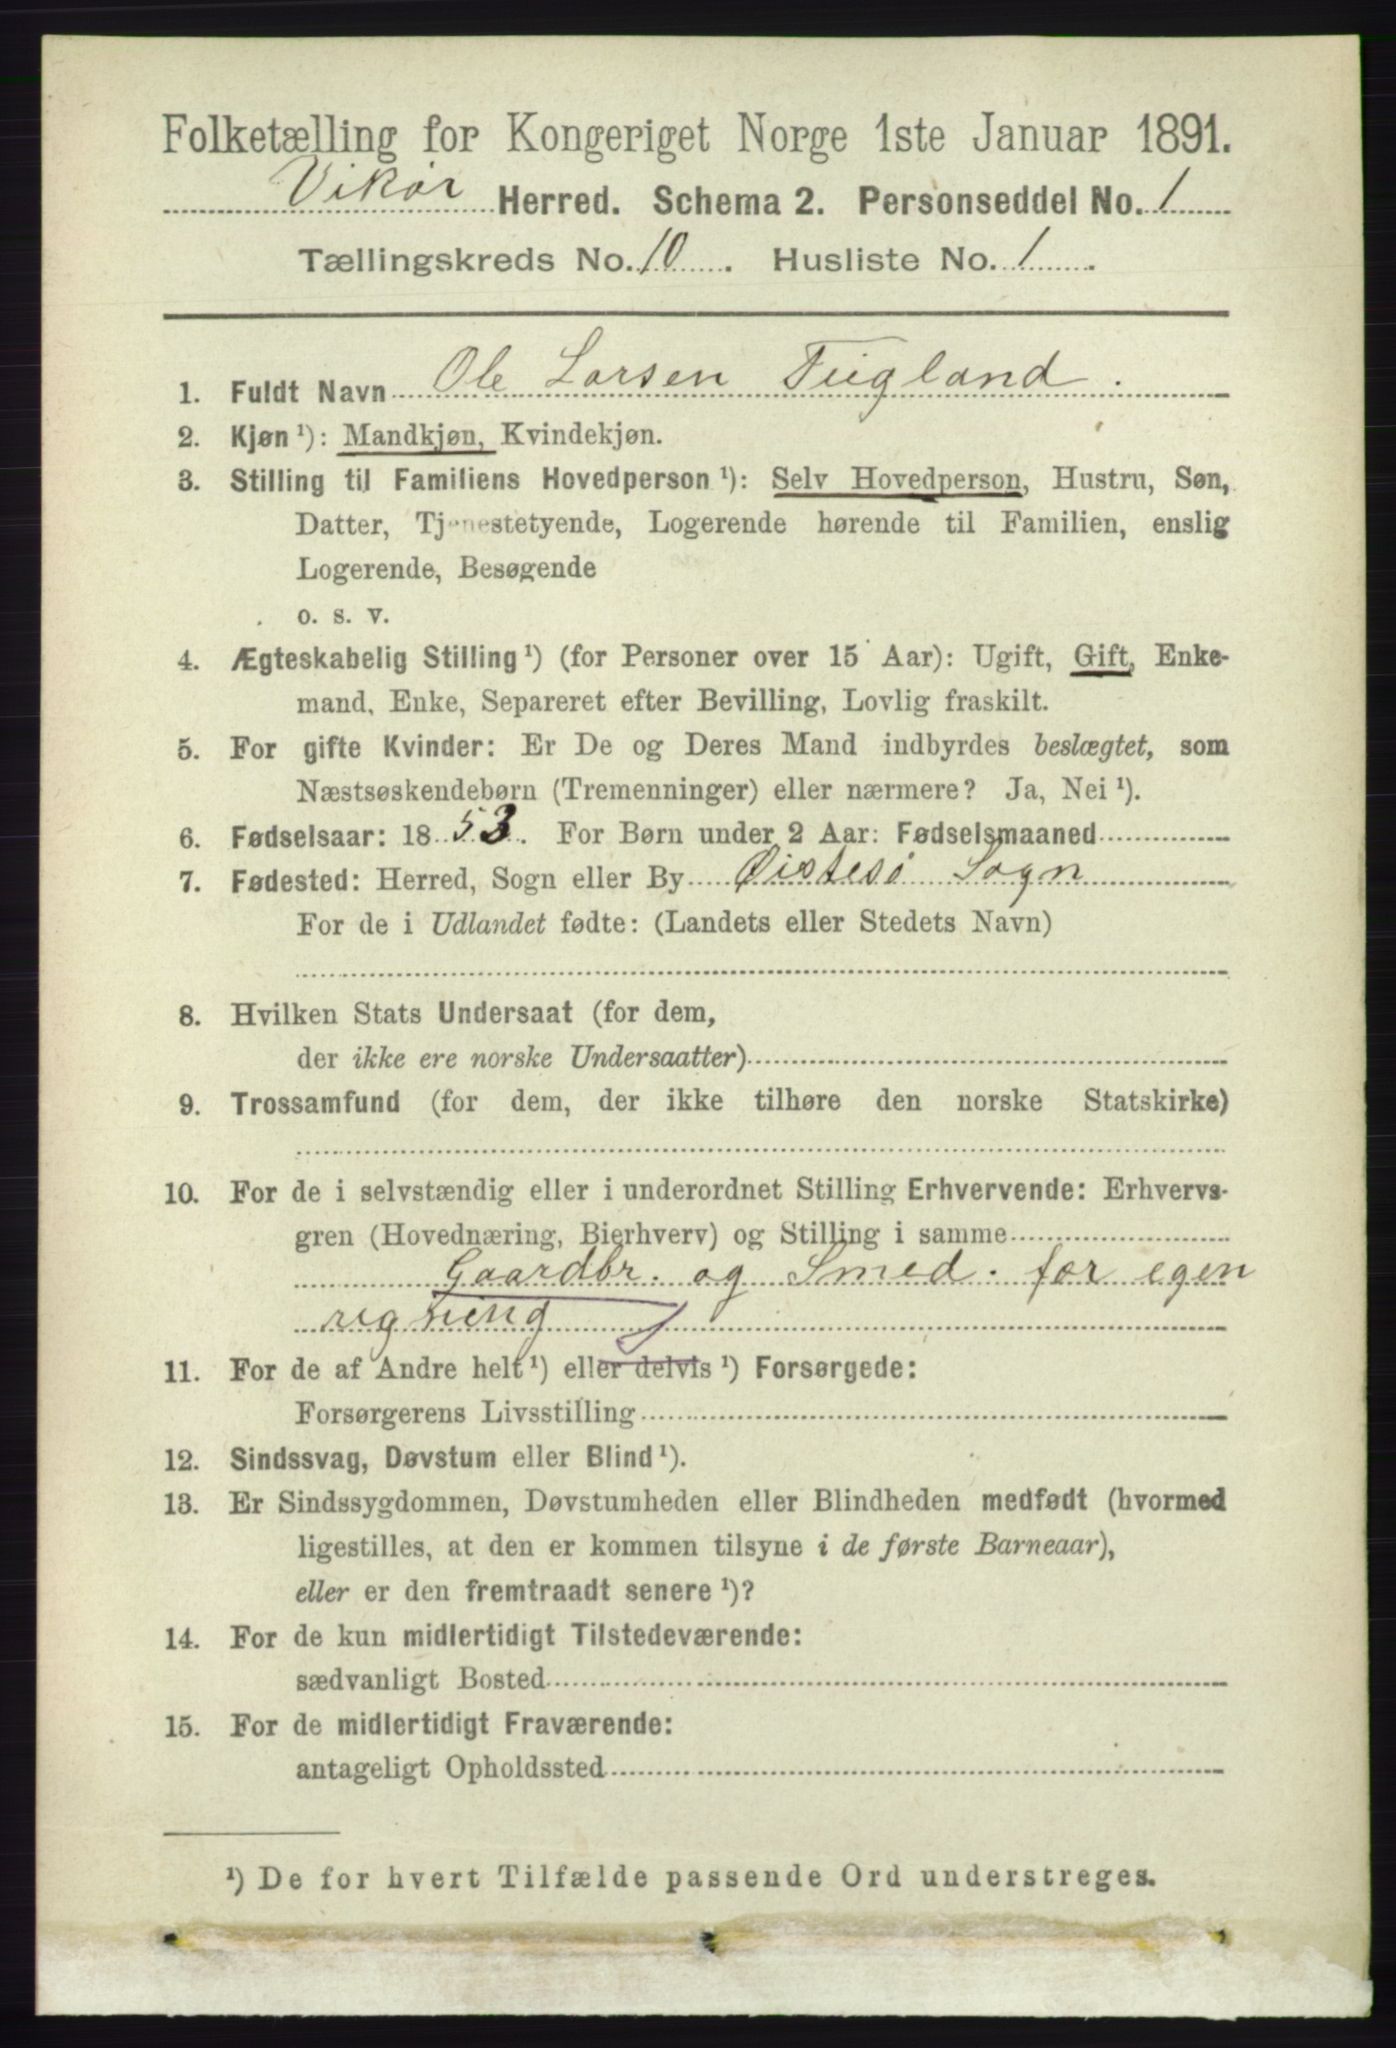 Folketælling for Kongeriget Norge 1ste Januar 1891.
Vikør Herred. Schema 2. Personseddel No. 1
Tællingskreds No. 10. Husliste No. 1.
1. Fuldt Navn Ole Larsen Fugland.
2. Kjøn ¹): Mandkjøn, Kvindekjøn.
3. Stilling til Familiens Hovedperson ¹): Selv Hovedperson, Hustru, Søn,
Datter, Tjenestetyende, Logerende hørende til Familien, enslig
Logerende, Besøgende
o. s. v.
4. Ægteskabelig Stilling ¹) (for Personer over 15 Aar): Ugift, Gift, Enke-
mand, Enke, Separeret efter Bevilling, Lovlig fraskilt.
5. For gifte Kvinder: Er De og Deres Mand indbyrdes beslægtet, som
Næstsøskendebørn (Tremenninger) eller nærmere? Ja, Nei ¹).
6. Fødselsaar: 1853. For Børn under 2 Aar: Fødselsmaaned
7. Fødested: Herred, Sogn eller By Øistesø Sogn
For de i Udlandet fødte: (Landets eller Stedets Navn)
8. Hvilken Stats Undersaat (for dem,
der ikke ere norske Undersaatter)
9. Trossamfund (for dem, der ikke tilhøre den norske Statskirke)
10. For de i selvstændig eller i underordnet Stilling Erhvervende: Erhvervs-
gren (Hovednæring, Bierhverv) og Stilling i samme
Gaardbr. og Smed. for egen
regning
11. For de af Andre helt ¹) eller delvis ¹) Forsørgede:
Forsørgerens Livsstilling
12. Sindssvag, Døvstum eller Blind ¹).
13. Er Sindssygdommen, Døvstumheden eller Blindheden medfødt (hvormed
ligestilles, at den er kommen tilsyne i de første Barneaar),
eller er den fremtraadt senere ¹)?
14. For de kun midlertidigt Tilstedeværende:
sædvanligt Bosted
15. For de midlertidigt Fraværende:
antageligt Opholdssted
¹) De for hvert Tilfælde passende Ord understreges.